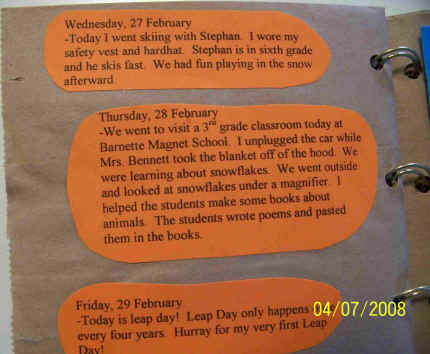 Wednesday, 27 February
-Today I went skiing with Stephan. I wore my
safety vest and hardhat. Stephan is in sixth grade
and he skis fast. We had fun playing in the snow
afterward
Thursday, 28 February
-We went to visit a 3rd grade classroom today at
Barnette Magnet School. I unplugged the car while
Mrs. Bennett took the blanket off of the hood. We
were learning about snowflakes. We went outside
and looked at snowflakes under a magnifier. I
helped the students make some books about
animals. The students wrote poems and pasted
them in the books.
Friday, 29 February
-Today is leap day! Leap Day only happens
every four years. Hurray for my very first Leap
Day!
04/07/2008